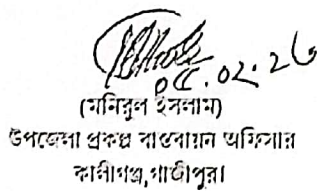 ০৫.০২.২৬
(মনিরুল ইসলাম)
উপজেলা প্রকল্প বাস্তবায়ন অফিসার
কালীগঞ্জ,গাজীপুর।